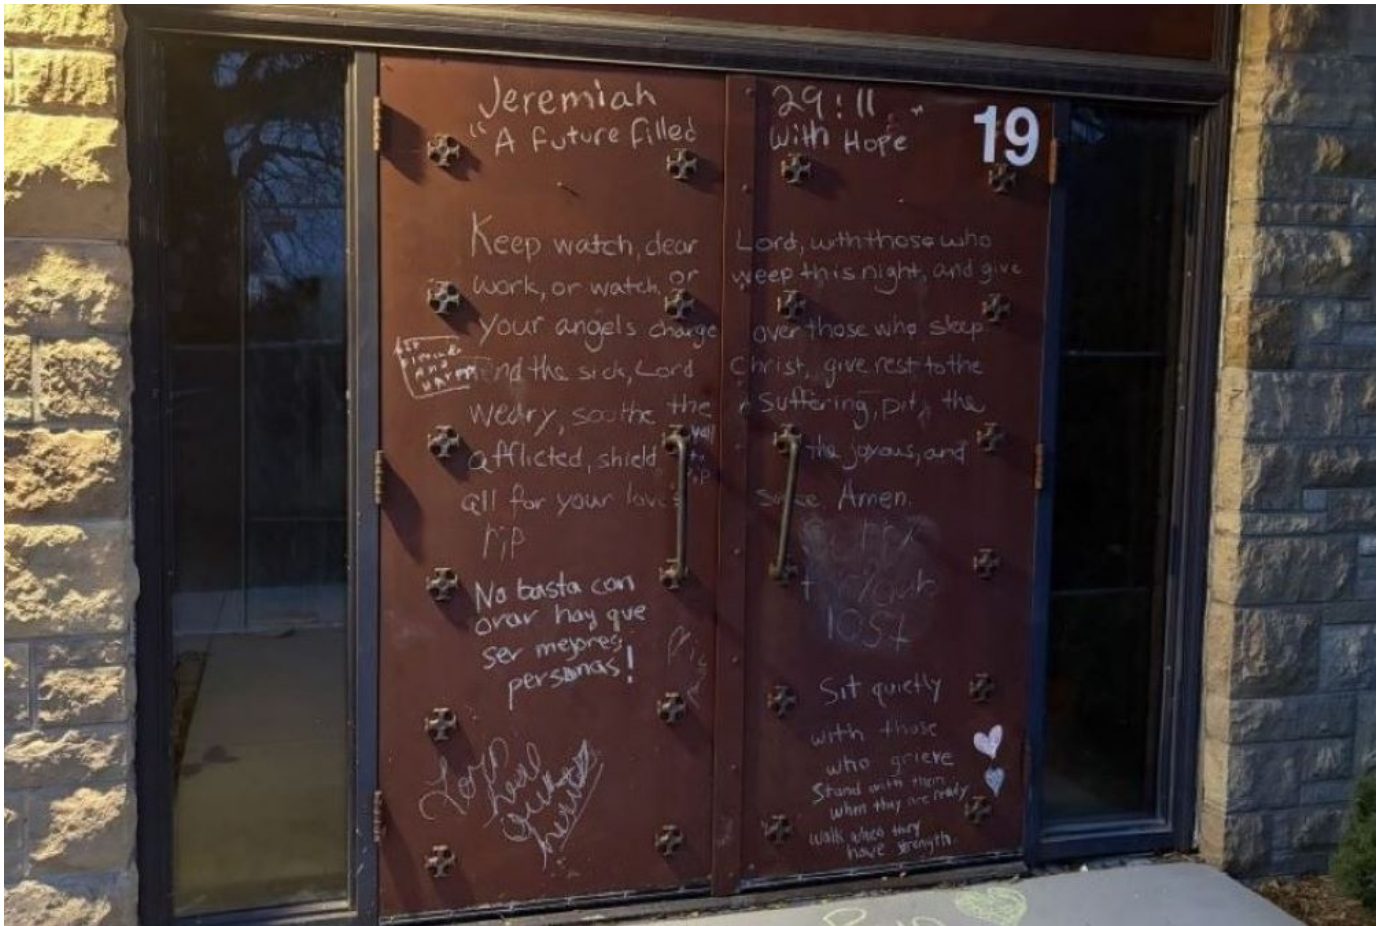 Jeremiah 29:11
"A future filled With Hope"
19
Keep watch, dear Lord, with those who
work, or watch, or weep this night, and give
your angels charge over those who sleep
Tend the sick, Lord Christ, give rest to the
weary, soothe the suffering, pity the
afflicted, shield the joyous, and
all for your love's sake. Amen.
rip
No basta con
orar hay que
ser mejores
personas!
lost
Lord
heal
Sit quietly
with those
who grieve
Stand with them
when they are ready
walk when they
have strength.